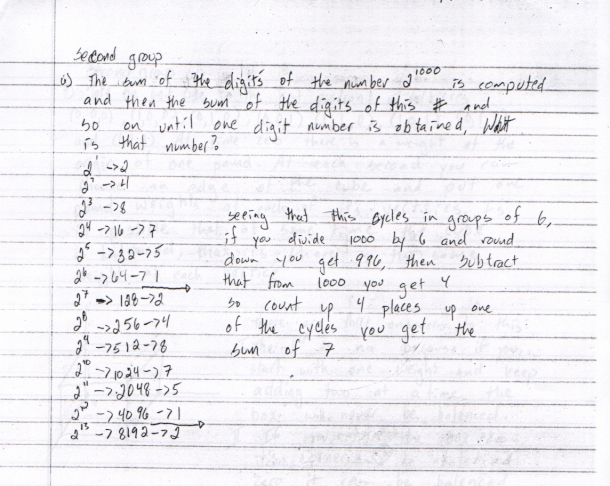 Second group
6) The sum of the digits of the number 2^1000 is computed
and then the sum of the digits of this # and
so on until one digit number is obtained, What
is that number?
2^1 -> 2
2^2 -> 4
2^3 -> 8
2^4 -> 16 -> 7
2^5 -> 32 -> 5
2^6 -> 64 -> 1
2^7 -> 128 -> 2
2^8 -> 256 -> 4
2^9 -> 512 -> 8
2^10 -> 1024 -> 7
2^11 -> 2048 -> 5
2^12 -> 4096 -> 1
2^13 -> 8192 -> 2
seeing that this cycles in groups of 6,
if you divide 1000 by 6 and round
down you get 996, then subtract
that from 1000 you get 4
so count up 4 places up one
of the cycles you get the
sum of 7